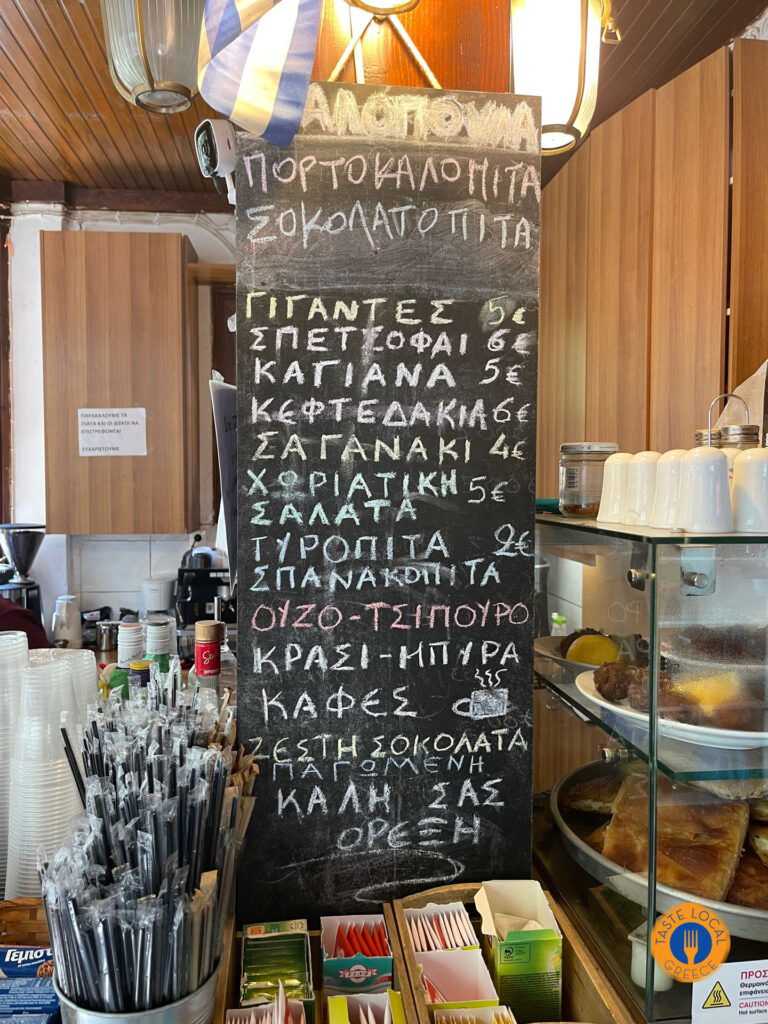 ΑΛΟΠΟΥΛΑ
ΠΟΡΤΟΚΑΛΟΠΙΤΑ
ΣΟΚΟΛΑΤΟΠΙΤΑ
ΓΙΓΑΝΤΕΣ 5€
ΣΠΕΤΣΟΦΑΙ 6€
ΚΑΓΙΑΝΑ 5€
ΚΕΦΤΕΔΑΚΙΑ 6€
ΣΑΓΑΝΑΚΙ 4€
ΧΩΡΙΑΤΙΚΗ 5€
ΣΑΛΑΤΑ
ΤΥΡΟΠΙΤΑ 2€
ΣΠΑΝΑΚΟΠΙΤΑ
ΟΥΖΟ-ΤΣΙΠΟΥΡΟ
ΚΡΑΣΙ-ΜΠΥΡΑ
ΚΑΦΕΣ
ΖΕΣΤΗ ΣΟΚΟΛΑΤΑ
ΠΑΓΩΜΕΝΗ
ΚΑΛΗ ΣΑΣ
ΟΡΕΞΗ
ΠΑΡΑΚΑΛΟΥΜΕ ΤΑ
ΠΙΑΤΑ ΚΑΙ ΟΙ ΔΙΣΚΟΙ ΝΑ
ΕΠΙΣΤΡΕΦΟΝΤΑΙ
ΕΥΧΑΡΙΣΤΟΥΜΕ
TASTE LOCAL
GREECE
ΠΡΟΣ
Θερμαινό
επιφάνει
CAUTION
Hot surface